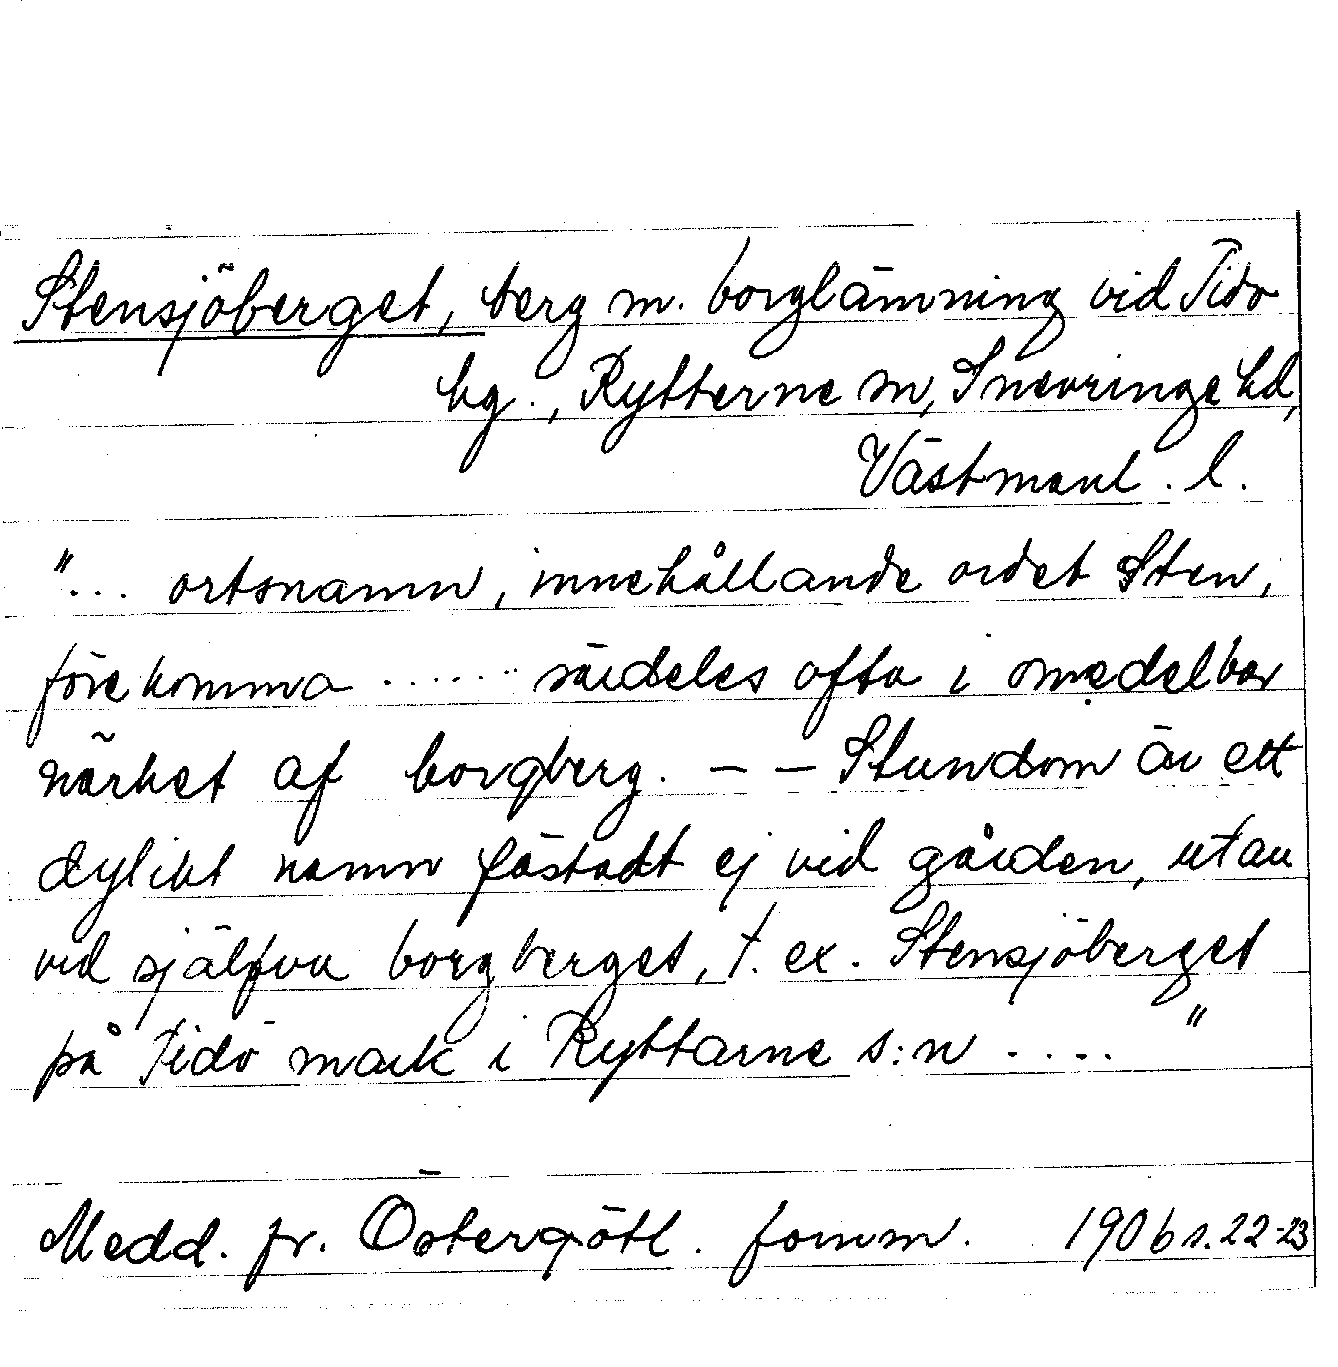 Stensjöberget, berg m. borglämning vid Tidö
hg., Rytterne sn, Snevringe hd,
Västmanl. l.
"... ortsnamn, innehållande ordet Sten,
förekomma ...... särdeles ofta i omedelbar
närhet af borgberg. – – Stundom är ett
dylikt namn fästadt ej vid gården, utan
vid själfva borgberget, t. ex. Stensjöberget
på Tidö mark i Ryttarne s:n ...."
Medd. fr. Östergötl. fornm. 1906 s. 22-23